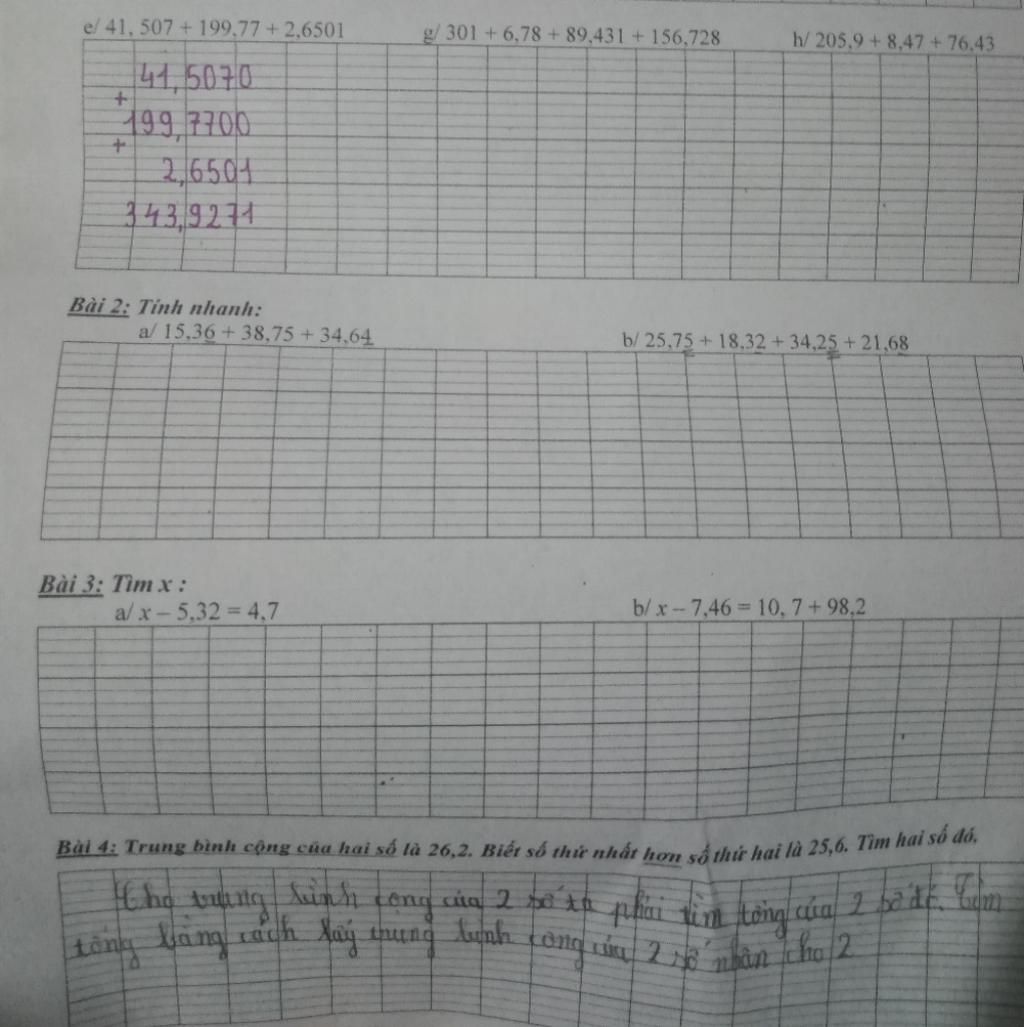 e/ 41, 507 + 199,77 + 2,6501
g/ 301 + 6,78 + 89,431 + 156,728
h/ 205,9 + 8,47 + 76,43
41,5070
+
199,7700
+
2,6501
343,9271
Bài 2: Tính nhanh:
a/ 15,36 + 38,75 + 34,64
b/ 25,75 + 18,32 + 34,25 + 21,68
Bài 3: Tìm x :
a/ x – 5,32 = 4,7
b/ x – 7,46 = 10, 7 + 98,2
Bài 4: Trung bình cộng của hai số là 26,2. Biết số thứ nhất hơn số thứ hai là 25,6. Tìm hai số đó.
Cho trung bình cộng của 2 số ta phải tìm tổng của 2 số đó. Tìm
tổng bằng cách lấy trung bình cộng của 2 số nhân cho 2